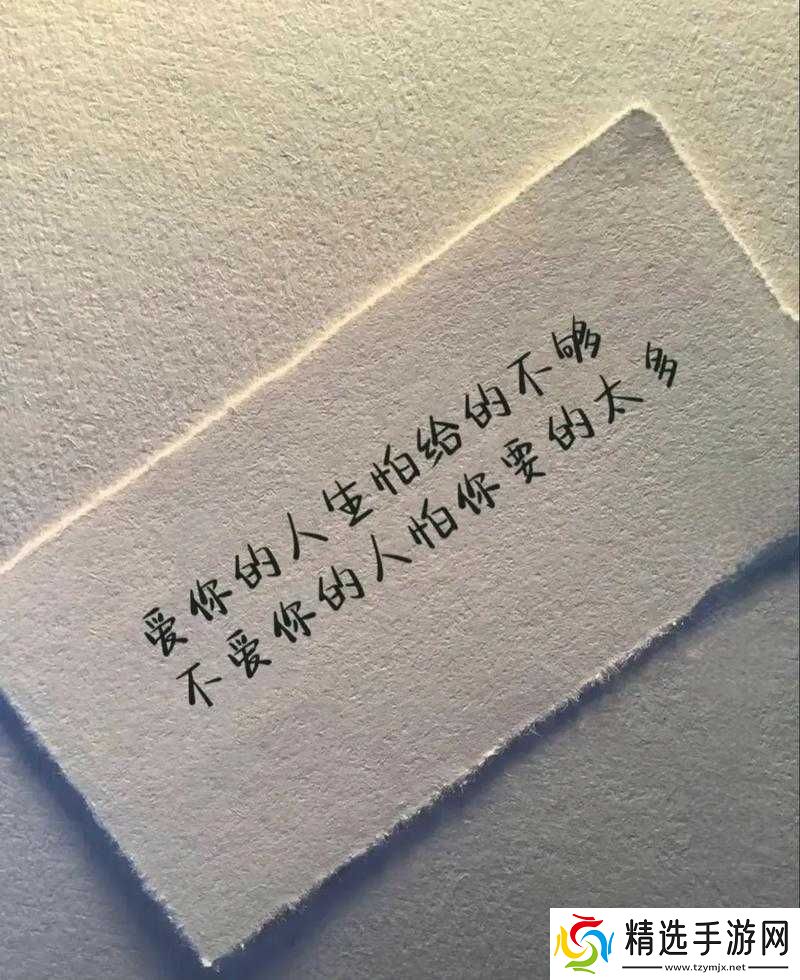 爱你的人生怕给的不够
不爱你的人怕你要的太多
精选手游网
www.tzymjx.net